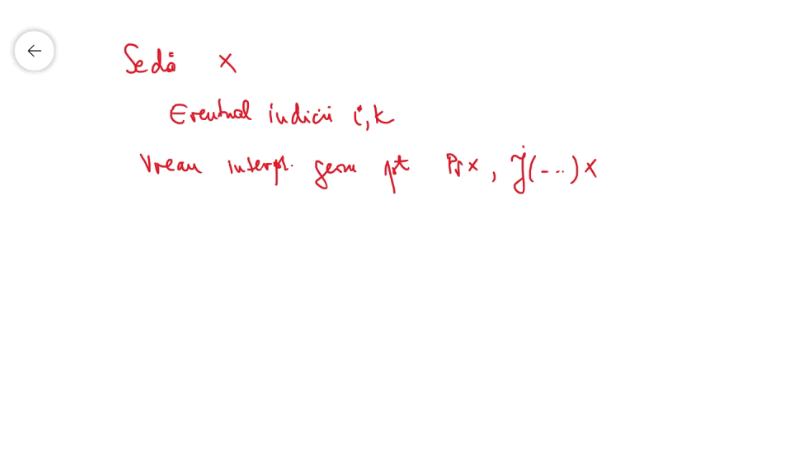 Se dă x
Eventual indicii i, k
Vreau interpr. geom pt Px, J(...)x